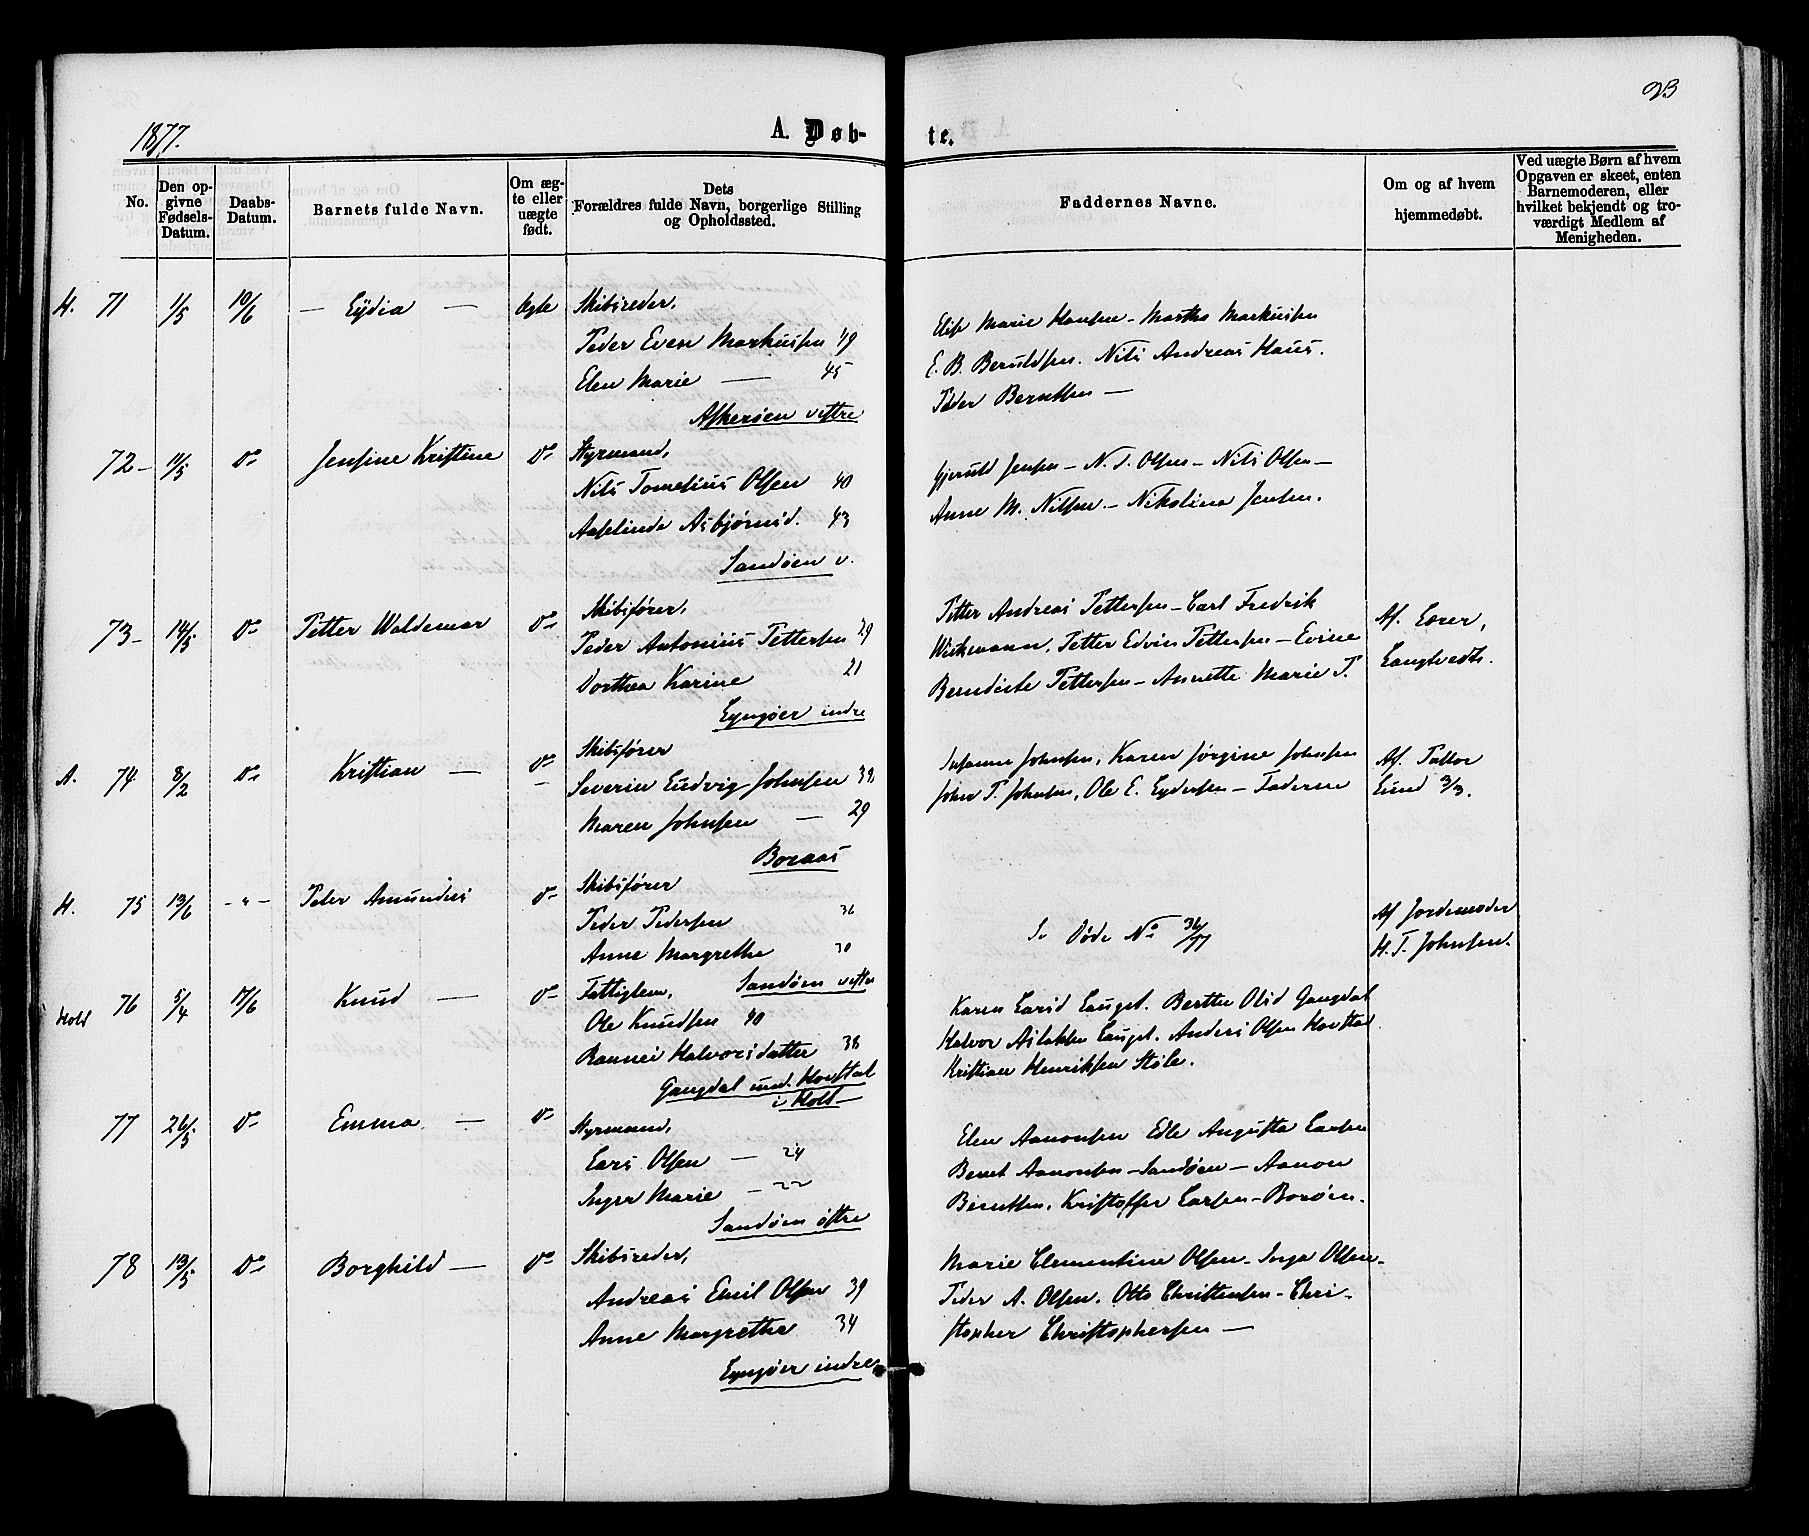 93
1877.
A. Døb-
te.
No.
Den op-
givne
Fødsels-
Datum.
Daabs-
Datum.
Barnets fulde Navn.
Om æg-
te eller
uægte
født.
Dets
Forældres fulde Navn, borgerlige Stilling
og Opholdssted.
Faddernes Navne.
Om og af hvem
hjemmedøbt.
Ved uægte Børn af hvem
Opgaven er skeet, enten
Barnemoderen, eller
hvilket bekjendt og tro-
værdigt Medlem af
Menigheden.
H. 71 1/5 10/6 — Lydia — Ægte Skibsreder,
Peder Even Markussen 49
Elen Marie — 45
Askerøen vestre
Elise Marie Hansen – Martha Markussen
E. B. Beruldsen. Nils Andreas Haus.
Peder Berntsen —
72 – 11/5 Do Jensine Kristine Do Styrmand,
Nils Tomesius Olsen 40
Aaselinde Asbjørnsd. 43
Sandøen v.
Gjeruld Jensen – N. T. Olsen – Nils Olsen –
Anne M. Nilsen – Nikoline Jensen.
73 – 14/5 Do Petter Waldemar Do Skibsfører,
Peder Antonius Pettersen 29
Dorthea Karine 21
Lyngøer indre
Petter Andreas Pettersen – Carl Fredrik
Wirkmann, Petter Edvin Pettersen – Evine
Berndiete Pettersen – Annette Marie P.
Af Lærer,
Langtvedt.
A. 74 8/2 Do Kristian — Do Skibsfører
Severin Ludvig Johnsen 32
Maren Johnsen — 29
Boraas
Susanne Johnsen, Karen Jørgine Johnsen
John P. Johnsen, Ole E. Eydersen – Faderen
Af Pastor
Lund 3/3.
H. 75 13/6 - " - Peter Amundus Do Skibsfører
Peder Pedersen 36
Anne Margrethe 30
Sandøen vestre
Se Døde No 36/77
Af Jordemoder
H. T. Johnsen.
Holt 76 5/4 17/6 Knud — Do Fattiglem,
Ole Knudsen 40
Rannei Halvorsdatter 38
Gangdal und. Hovstal
i Holt –
Karen Larsd Lauget. Berthe Olsd Gangdal
Halvor Aslaksen Lauget. Anders Olsen Hovstal
Kristian Henriksen Støle.
77 26/5 Do Emma — Do Styrmand,
Lars Olsen — 24
Inger Marie — 22
Sandøen østre
Elen Aanonsen Edle Augusta Larsen
Bernt Aanonsen – Sandøen – Aanon
Berntsen, Kristoffer Larsen – Borøen.
78 13/5 Do Borghild — Do Skibsreder,
Andreas Emil Olsen 39
Anne Margrethe 34
Lyngøer indre
Marie Clementine Olsen – Inga Olsen –
Peder A. Olsen. Otto Christensen – Chri-
stopher Christophersen —